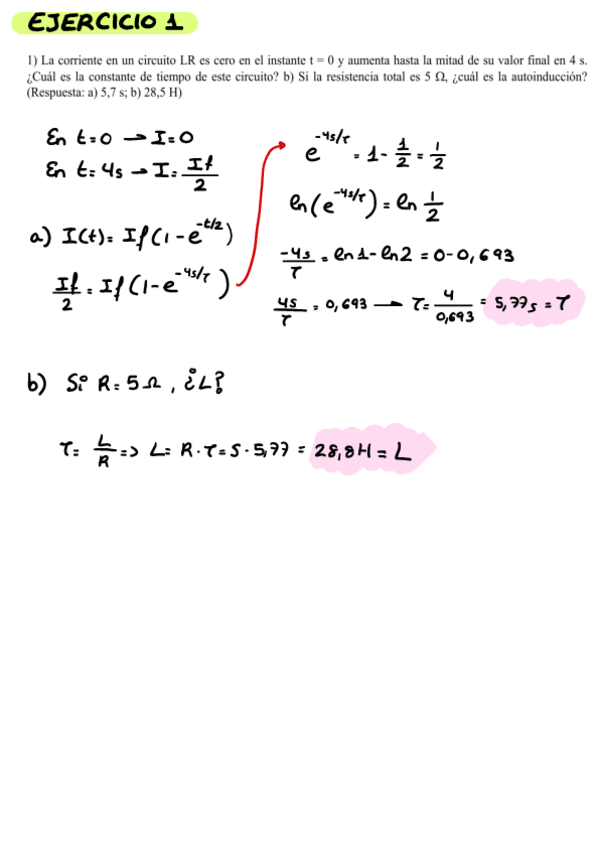 EJERCICIO 1
1) La corriente en un circuito LR es cero en el instante t = 0 y aumenta hasta la mitad de su valor final en 4 s.
¿Cuál es la constante de tiempo de este circuito? b) Si la resistencia total es 5 Ω, ¿cuál es la autoinducción?
(Respuesta: a) 5,7 s; b) 28,5 H)
En t=0 → I=0
En t=4s → I=If/2
a) I(t)=If(1-e^-t/2)
If/2=If(1-e^-4s/τ)
e^-4s/τ=1-1/2=1/2
ln(e^-4s/τ)=ln 1/2
-4s/τ=ln1-ln2=0-0,693
4s/τ=0,693 → τ=4/0,693=5,77s=τ
b) Si R=5Ω, ¿L?
τ=L/R=>L=R·τ=5·5,77=28,8H=L